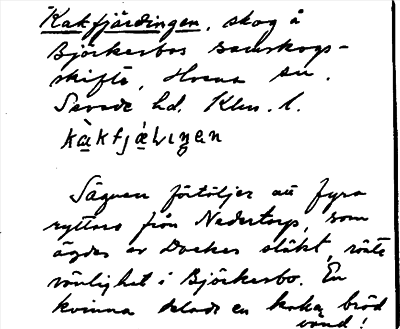 Kakfjärdingen, skog å
Björkerbos barrskogs-
skifte, Hvena sn.
Sevede hd. Klm. l.
kàkfjä́ɽiŋen
Sägnen förtäljer att fyra
ryttare från Nedertorp, som
ägdes av Dackes släkt, rönte
vänlighet i Björkerbo. En
kvinna delade en kaka bröd
vand!